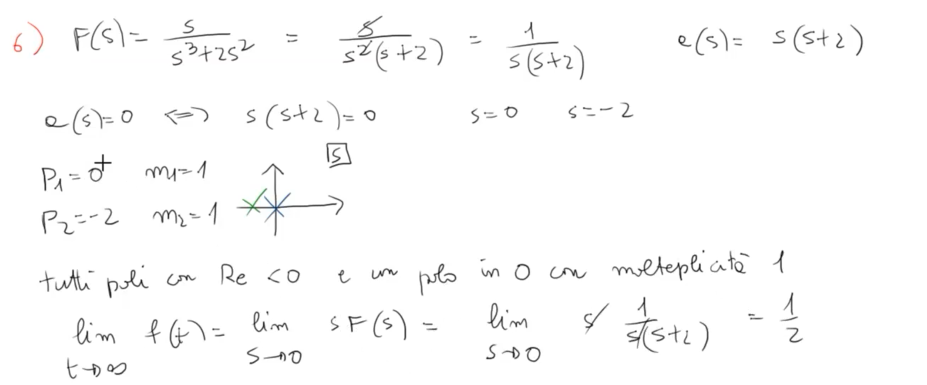 6) F(s) = s / (s³+2s²) = s / (s²(s+2)) = 1 / (s(s+2)) e(s) = s(s+2)
e(s)=0 <=> s(s+2)=0 s=0 s=-2
P₁=0⁺ m₁=1 [S]
P₂=-2 m₂=1
tutti poli con Re <0 e un polo in 0 con molteplicità 1
lim t→∞ f(t) = lim s→0 sF(s) = lim s→0 s 1 / (s(s+2)) = 1/2